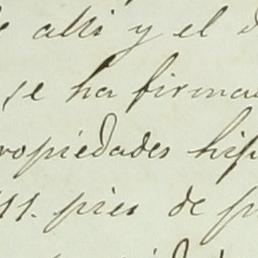 alli y el
se ha firma
ropiedades hip
111. pies de p